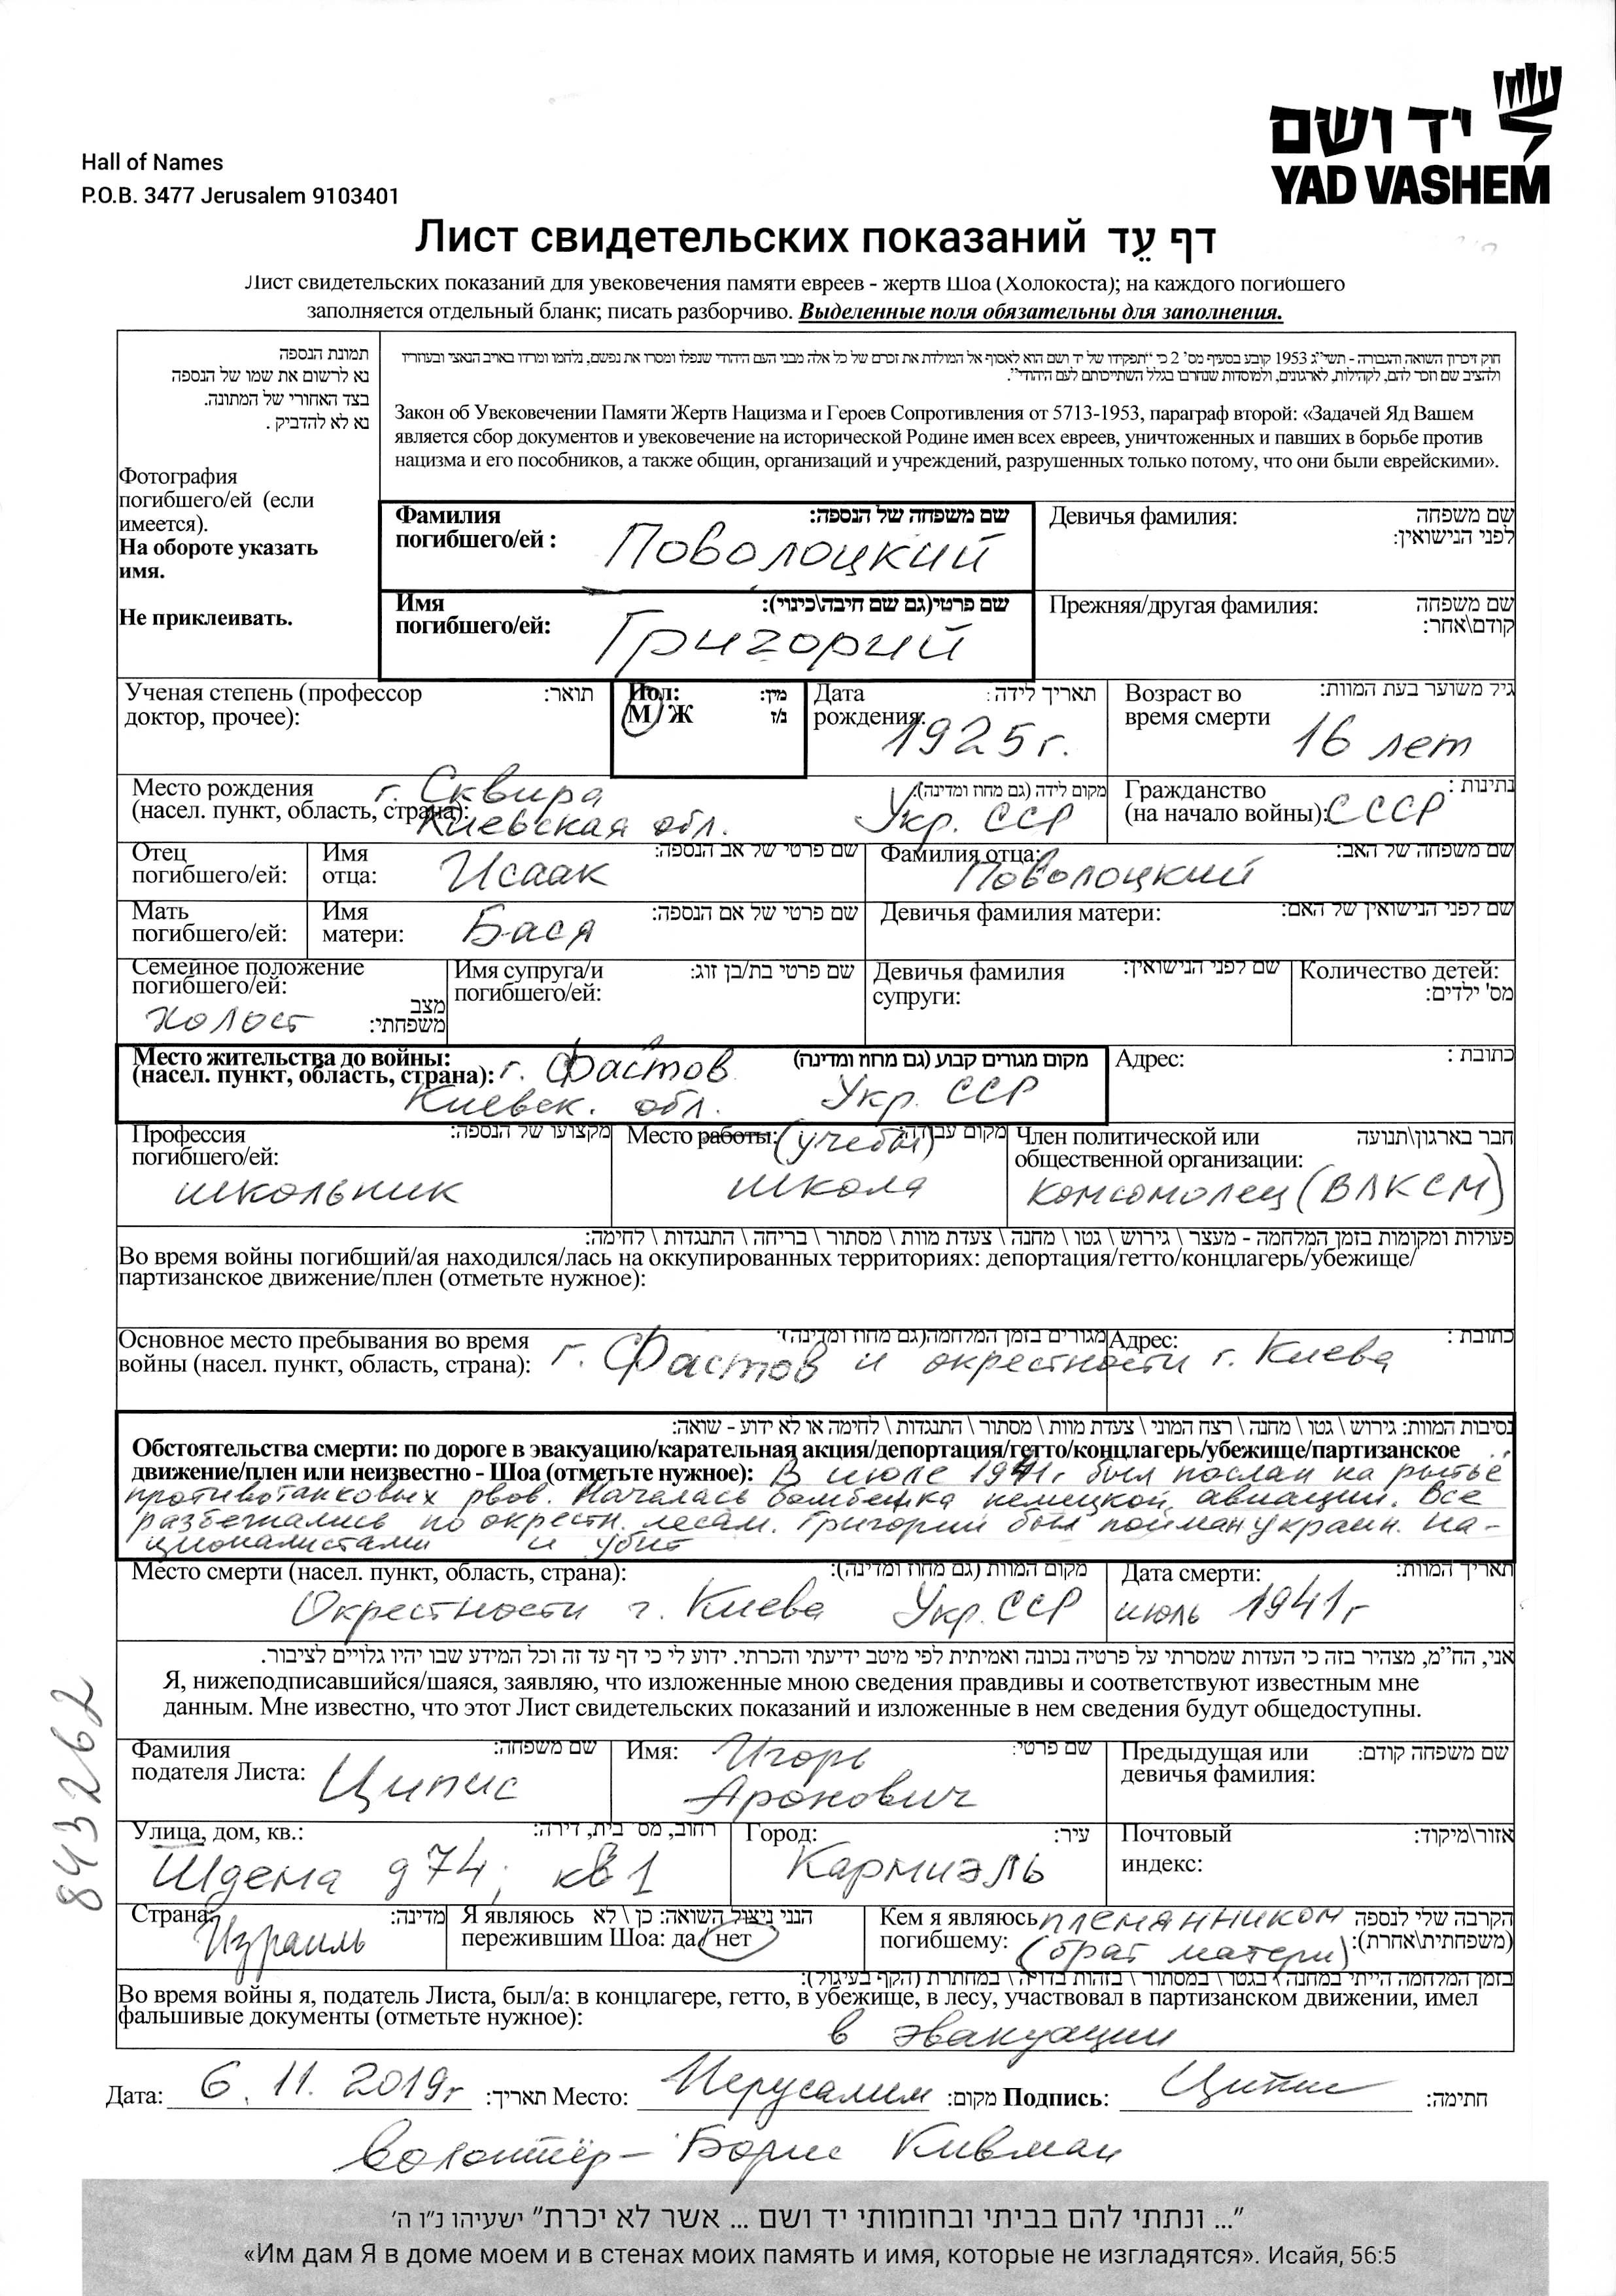 יד ושם
YAD VASHEM
Hall of Names
P.O.B. 3477 Jerusalem 9103401
Лист свидетельских показаний דף עֵד
Лист свидетельских показаний для увековечения памяти евреев - жертв Шоа (Холокоста); на каждого погибшего
заполняется отдельный бланк; писать разборчиво. Выделенные поля обязательны для заполнения.
תמונת הנספה
נא לרשום את שמו של הנספה
בצד האחורי של התמונה.
נא לא להדביק .
Фотография
погибшего/ей (если
имеется).
На обороте указать
имя.
Не приклеивать.
חוק זיכרון השואה והגבורה - תשי"ג 1953 קובע בסעיף מס' 2 כי "תפקידו של יד ושם הוא לאסוף אל המולדת את זכרם של כל אלה מבני העם היהודי שנפלו ומסרו את נפשם, נלחמו ומרדו באויב הנאצי ובעוזריו
ולהציב שם וזכר להם, לקהילות, לארגונים, ולמוסדות שנחרבו בגלל השתייכותם לעם היהודי".
Закон об Увековечении Памяти Жертв Нацизма и Героев Сопротивления от 5713-1953, параграф второй: «Задачей Яд Вашем
является сбор документов и увековечение на исторической Родине имен всех евреев, уничтоженных и павших в борьбе против
нацизма и его пособников, а также общин, организаций и учреждений, разрушенных только потому, что они были еврейскими».
Фамилия погибшего/ей : שם משפחה של הנספה:
Поволоцкий
Девичья фамилия: שם משפחה לפני הנישואין:
Имя погибшего/ей: שם פרטי(גם שם חיבה\כינוי):
Григорий
Прежняя/другая фамилия: שם משפחה קודם\אחר:
Ученая степень (профессор доктор, прочее): תואר:
Пол: מין:
М/Ж ז/נ
Дата рождения: תאריך לידה :
1925 г.
Возраст во время смерти גיל משוער בעת המוות:
16 лет
Место рождения (насел. пункт, область, страна): מקום לידה (גם מחוז ומדינה):
г. Сквира
Киевская обл. Укр. ССР
Гражданство (на начало войны): נתינות :
СССР
Отец погибшего/ей:
Имя отца: שם פרטי של אב הנספה:
Исаак
Фамилия отца: שם משפחה של האב:
Поволоцкий
Мать погибшего/ей:
Имя матери: שם פרטי של אם הנספה:
Бася
Девичья фамилия матери: שם לפני הנישואין של האם:
Семейное положение погибшего/ей: מצב משפחתי:
холост
Имя супруга/и погибшего/ей: שם פרטי בת/בן זוג:
Девичья фамилия супруги: שם לפני הנישואין:
Количество детей: מס' ילדים:
Место жительства до войны: (насел. пункт, область, страна): מקום מגורים קבוע (גם מחוז ומדינה)
г. Фастов
Киевск. обл. Укр. ССР
Адрес: כתובת :
Профессия погибшего/ей: מקצועו של הנספה:
школьник
Место работы: (учебы) מקום עבודה:
школа
Член политической или общественной организации: חבר בארגון\תנועה
комсомолец (ВЛКСМ)
פעולות ומקומות בזמן המלחמה - מעצר \ גירוש \ גטו \ מחנה \ צעדת מוות \ מסתור \ בריחה \ התנגדות \ לחימה:
Во время войны погибший/ая находился/лась на оккупированных территориях: депортация/гетто/концлагерь/убежище/
партизанское движение/плен (отметьте нужное):
Основное место пребывания во время войны (насел. пункт, область, страна): מגורים בזמן המלחמה(גם מחוז ומדינה): Адрес: כתובת :
г. Фастов и окрестности г. Киева
נסיבות המוות: גירוש \ גטו \ מחנה \ רצח המוני \ צעדת מוות \ מסתור \ התנגדות \ לחימה או לא ידוע - שואה:
Обстоятельства смерти: по дороге в эвакуацию/карательная акция/депортация/гетто/концлагерь/убежище/партизанское
движение/плен или неизвестно - Шоа (отметьте нужное): В июле 1941г был послан на рытьё
противотанковых рвов. Началась бомбежка немецкой авиации. Все
разбежались по окрестн. лесам. Григорий был пойман украин. на-
ционалистами и убит
Место смерти (насел. пункт, область, страна): מקום המוות (גם מחוז ומדינה):
Окрестности г. Киева Укр. ССР
Дата смерти: תאריך המוות:
июль 1941г
אני, הח"מ, מצהיר בזה כי העדות שמסרתי על פרטיה נכונה ואמיתית לפי מיטב ידיעתי והכרתי. ידוע לי כי דף עד זה וכל המידע שבו יהיו גלויים לציבור.
Я, нижеподписавшийся/шаяся, заявляю, что изложенные мною сведения правдивы и соответствуют известным мне
данным. Мне известно, что этот Лист свидетельских показаний и изложенные в нем сведения будут общедоступны.
843262
Фамилия подателя Листа: שם משפחה:
Ципис
Имя: שם פרטי:
Игорь
Аронович
Предыдущая или девичья фамилия: שם משפחה קודם:
Улица, дом, кв.: רחוב, מס' בית, דירה:
Шдема д 74, кв 1
Город: עיר:
Кармиэль
Почтовый индекс: אזור\מיקוד:
Страна: מדינה:
Израиль
Я являюсь пережившим Шоа: да / нет הנני ניצול השואה: כן \ לא
Кем я являюсь погибшему: הקרבה שלי לנספה (משפחתית\אחרת):
племянником
(брат матери)
בזמן המלחמה הייתי במחנה \ בגטו \ במסתור \ בזהות בדויה \ במחתרת (הקף בעיגול):
Во время войны я, податель Листа, был/а: в концлагере, гетто, в убежище, в лесу, участвовал в партизанском движении, имел
фальшивые документы (отметьте нужное):
в эвакуации
Дата: 6. 11. 2019г תאריך: Место: Иерусалим מקום: Подпись: Ципис חתימה:
Волонтёр — Борис Кивман
"... ונתתי להם בביתי ובחומותי יד ושם ... אשר לא יכרת" ישעיהו נ"ו ה'
«Им дам Я в доме моем и в стенах моих память и имя, которые не изгладятся». Исайя, 56:5